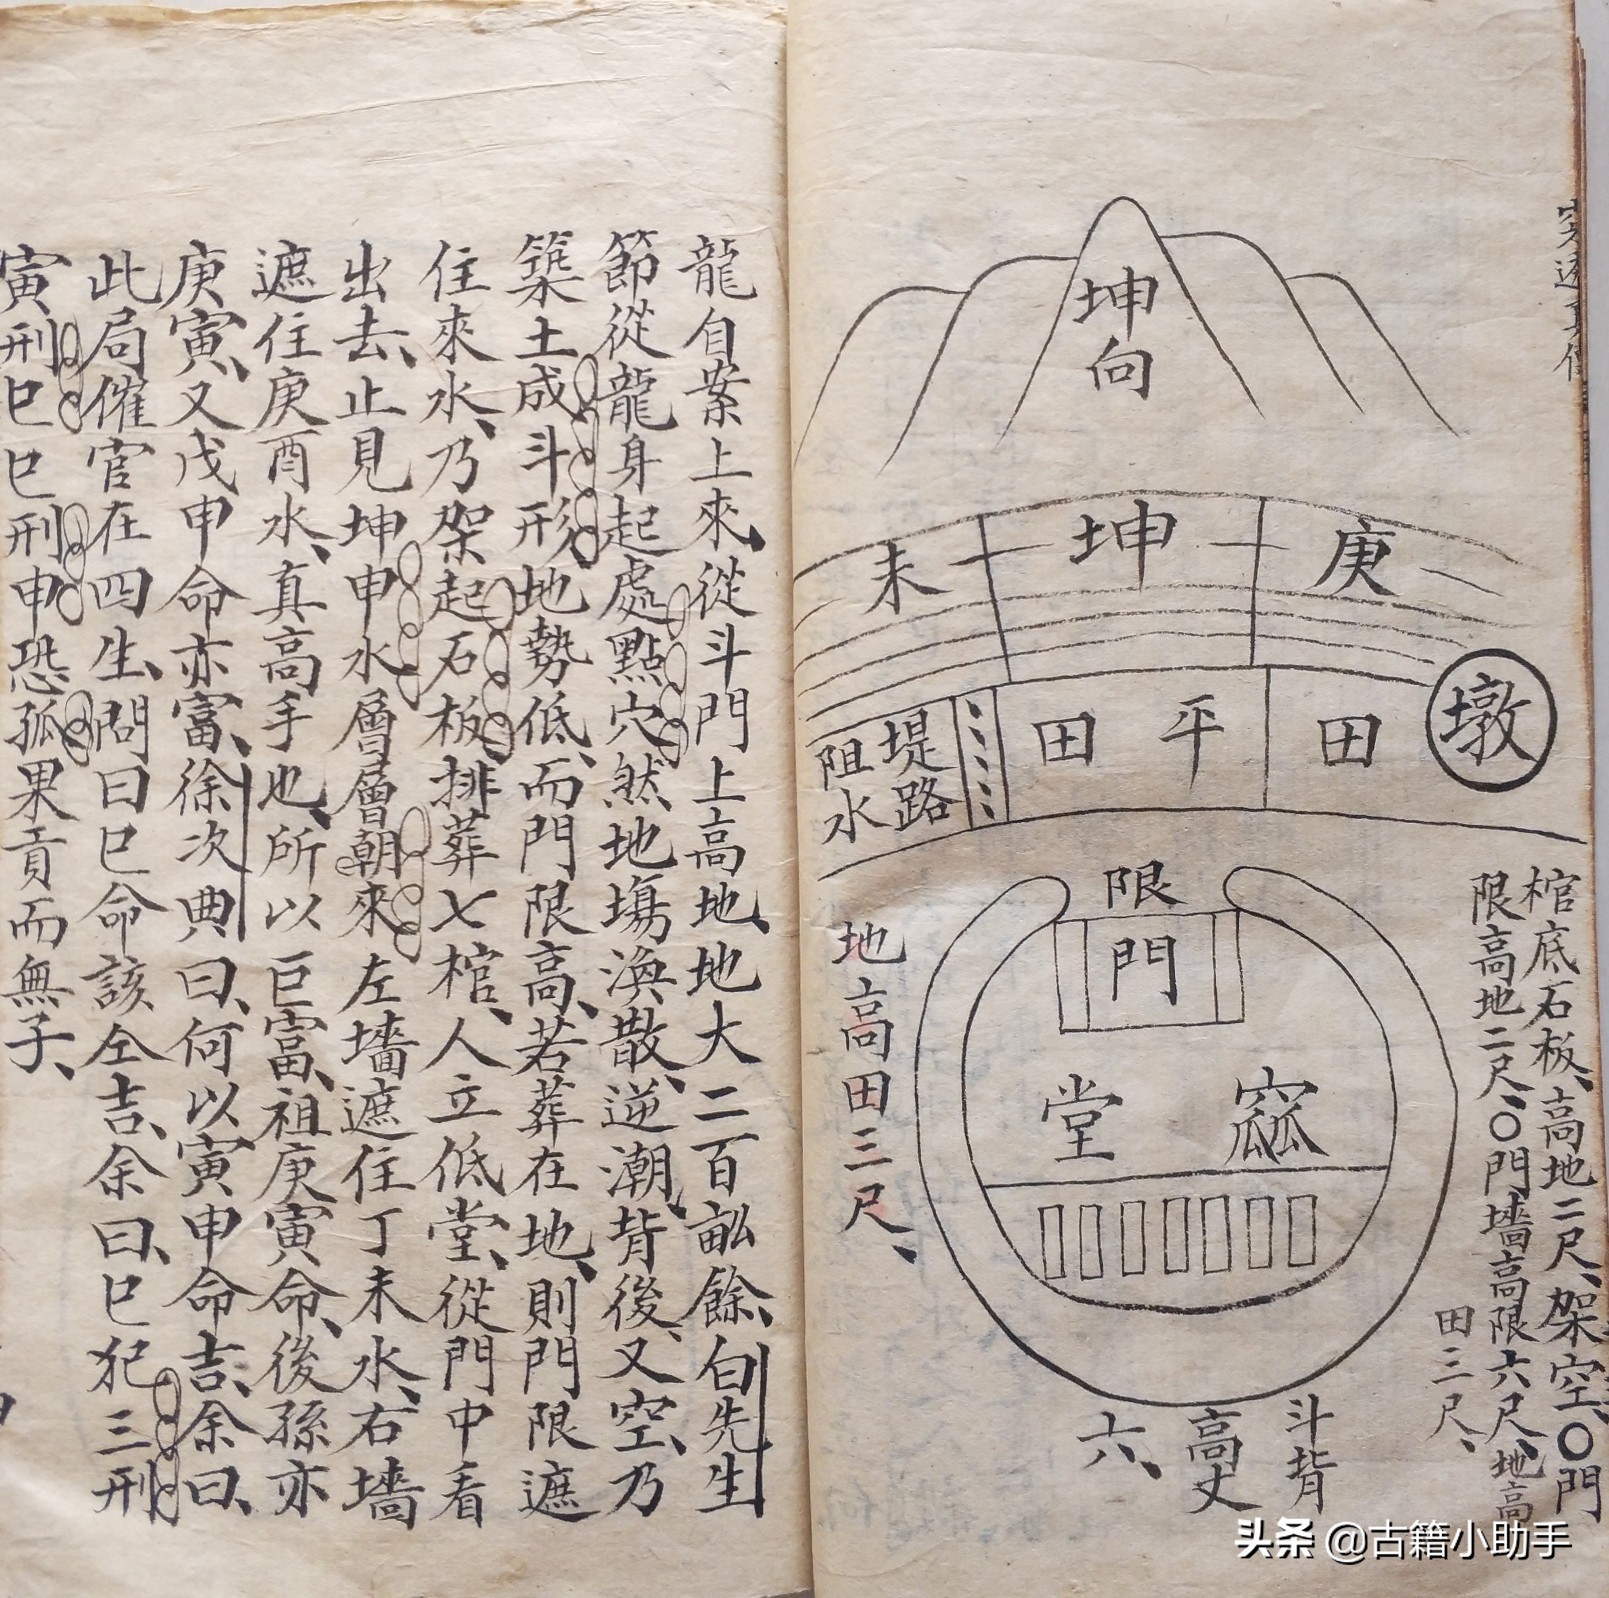 坤向
未
坤
庚
堤路
阻水
平田
田
墩
限
門
窳堂
地高田三尺、
棺底石板、高地二尺、架空、〇門
限高地二尺、〇門墻高限六尺、地高
田三尺、
斗背
高丈
六、
龍自案上來、從斗門上高地、地大二百畝餘、白先生
節從龍身起處點穴、然地塲渙散、逆潮、背後又空、乃
築土成斗形、地勢低、而門限高、若葬在地、則門限遮
住來水、乃架起石板、排葬七棺、人立低堂、從門中看
出去、止見坤申水層層朝來、左墻遮住丁未水、右墻
遮住庚酉水、真高手也、所以巨富、祖庚寅命、後孫亦
庚寅、又戊申命亦富、徐次典曰、何以寅申命吉、余曰、
此局催官在四生、問曰巳命該仝吉、余曰、巳犯三刑
寅刑巳巳刑申恐孤果貢而無子、
头条 @古籍小助手